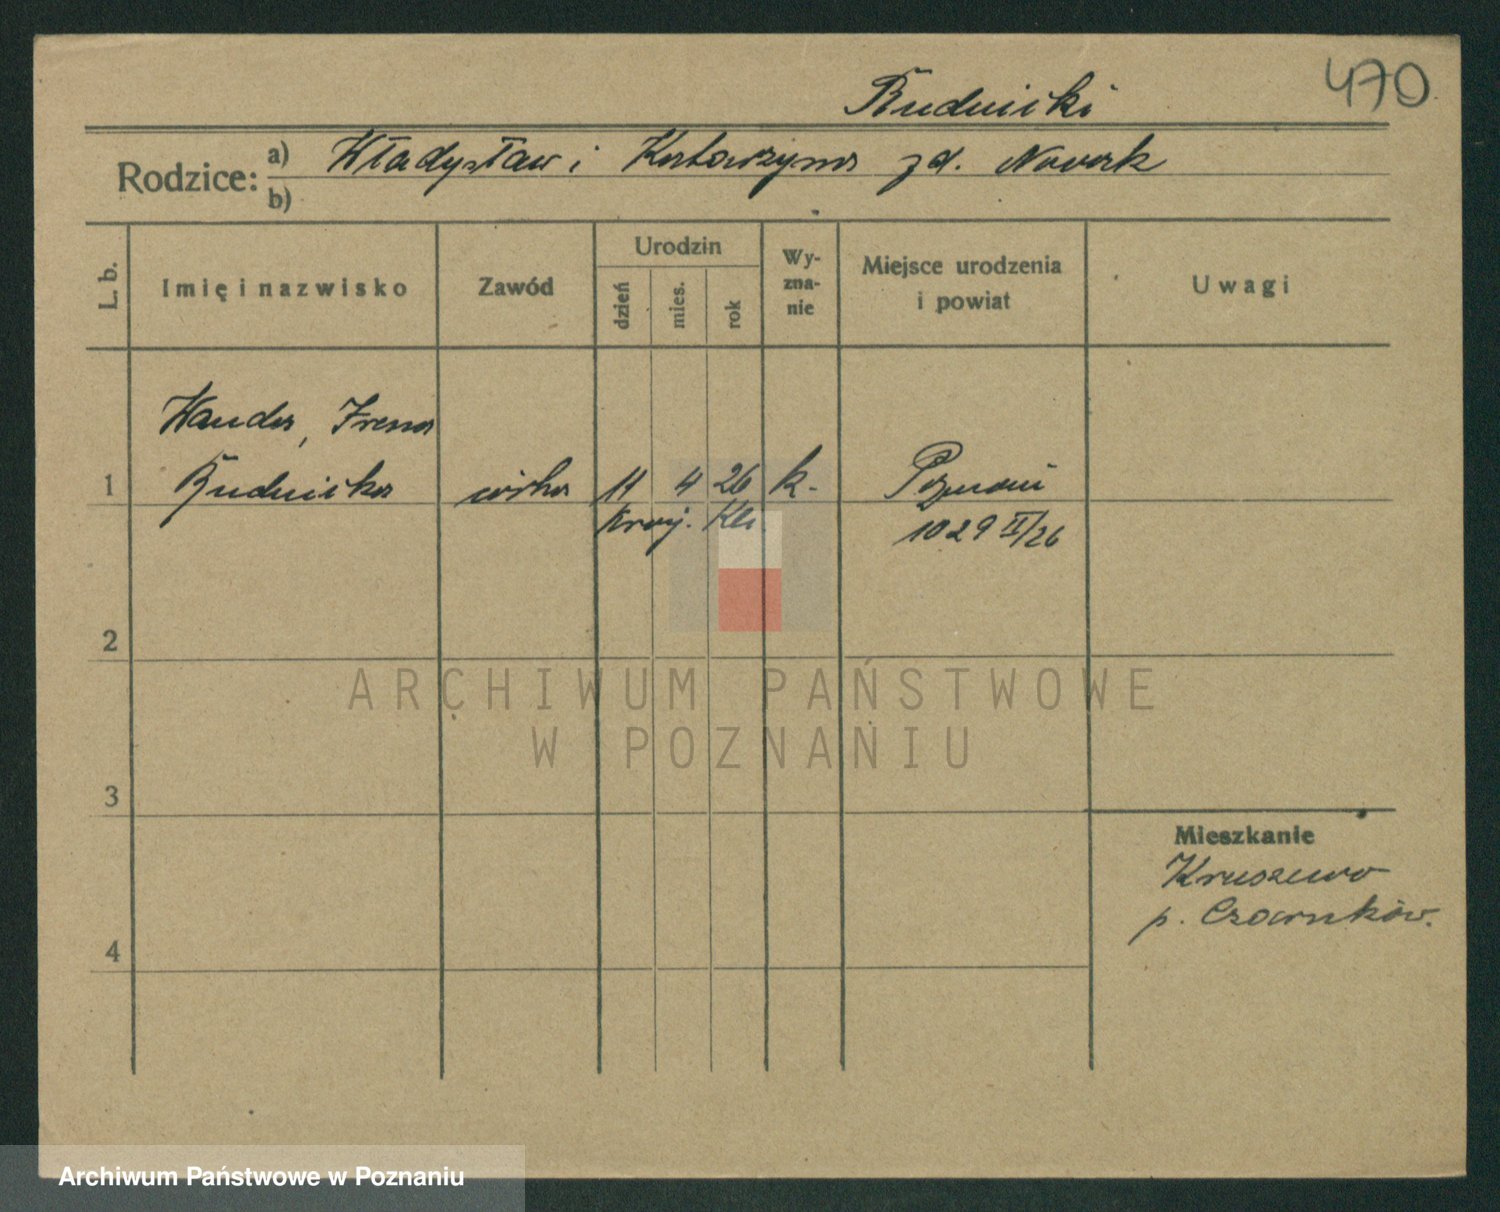 470
Rudnicki
Rodzice: a) Władysław i Katarzyna zd. Nowak
b)
L. b.
Imię i nazwisko
Zawód
Urodzin
dzień
mies.
rok
Wy-
zna-
nie
Miejsce urodzenia
i powiat
Uwagi
Wanda, Irena
1 Rudnicka córka 11 4 26 k. Poznań
1029 II/26
2
3
4
Mieszkanie
Kruszewo
p. Czarnków.
ARCHIWUM PAŃSTWOWE
W POZNANIU
Archiwum Państwowe w Poznaniu